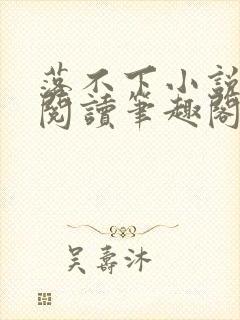 落不下小說
閱讀筆趣閣
吳壽沐